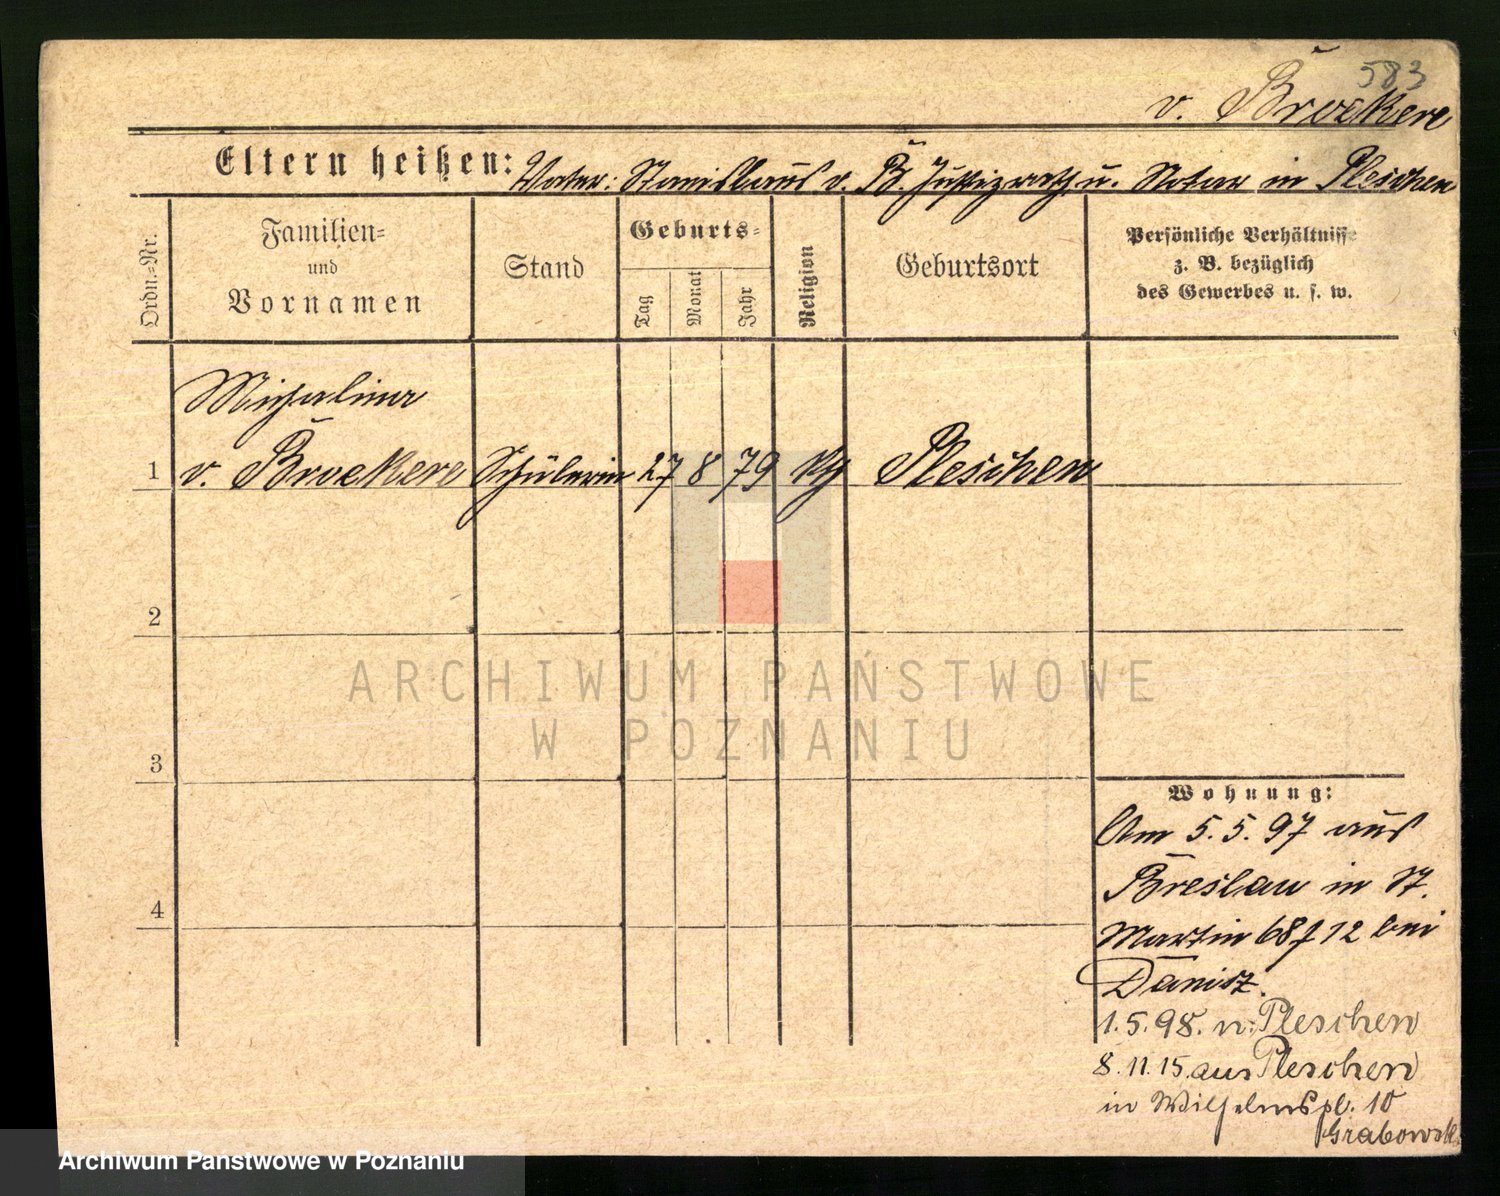 583
v. Broekere
Eltern heißen: Vater: Stanislaus v. B. Justizrath u. Notar in Pleschen
Ordn.-Nr.
Familien-
und
Vornamen
Stand
Geburts-
Tag
Monat
Jahr
Religion
Geburtsort
Persönliche Verhältnisse
z. B. bezüglich
des Gewerbes u. s. w.
Michalina
1 v. Broekere Schülerin 27 8 79 Pleschen
2
3
4
Wohnung:
Am 5.5.97 aus
Breslau in St.
Martin 68 12 bei
Danisz.
1.5.98. n. Pleschen
8.11.15 aus Pleschen
in Wilhelmspl. 10
Grabowsk
ARCHIWUM PAŃSTWOWE
W POZNANIU
Archiwum Państwowe w Poznaniu